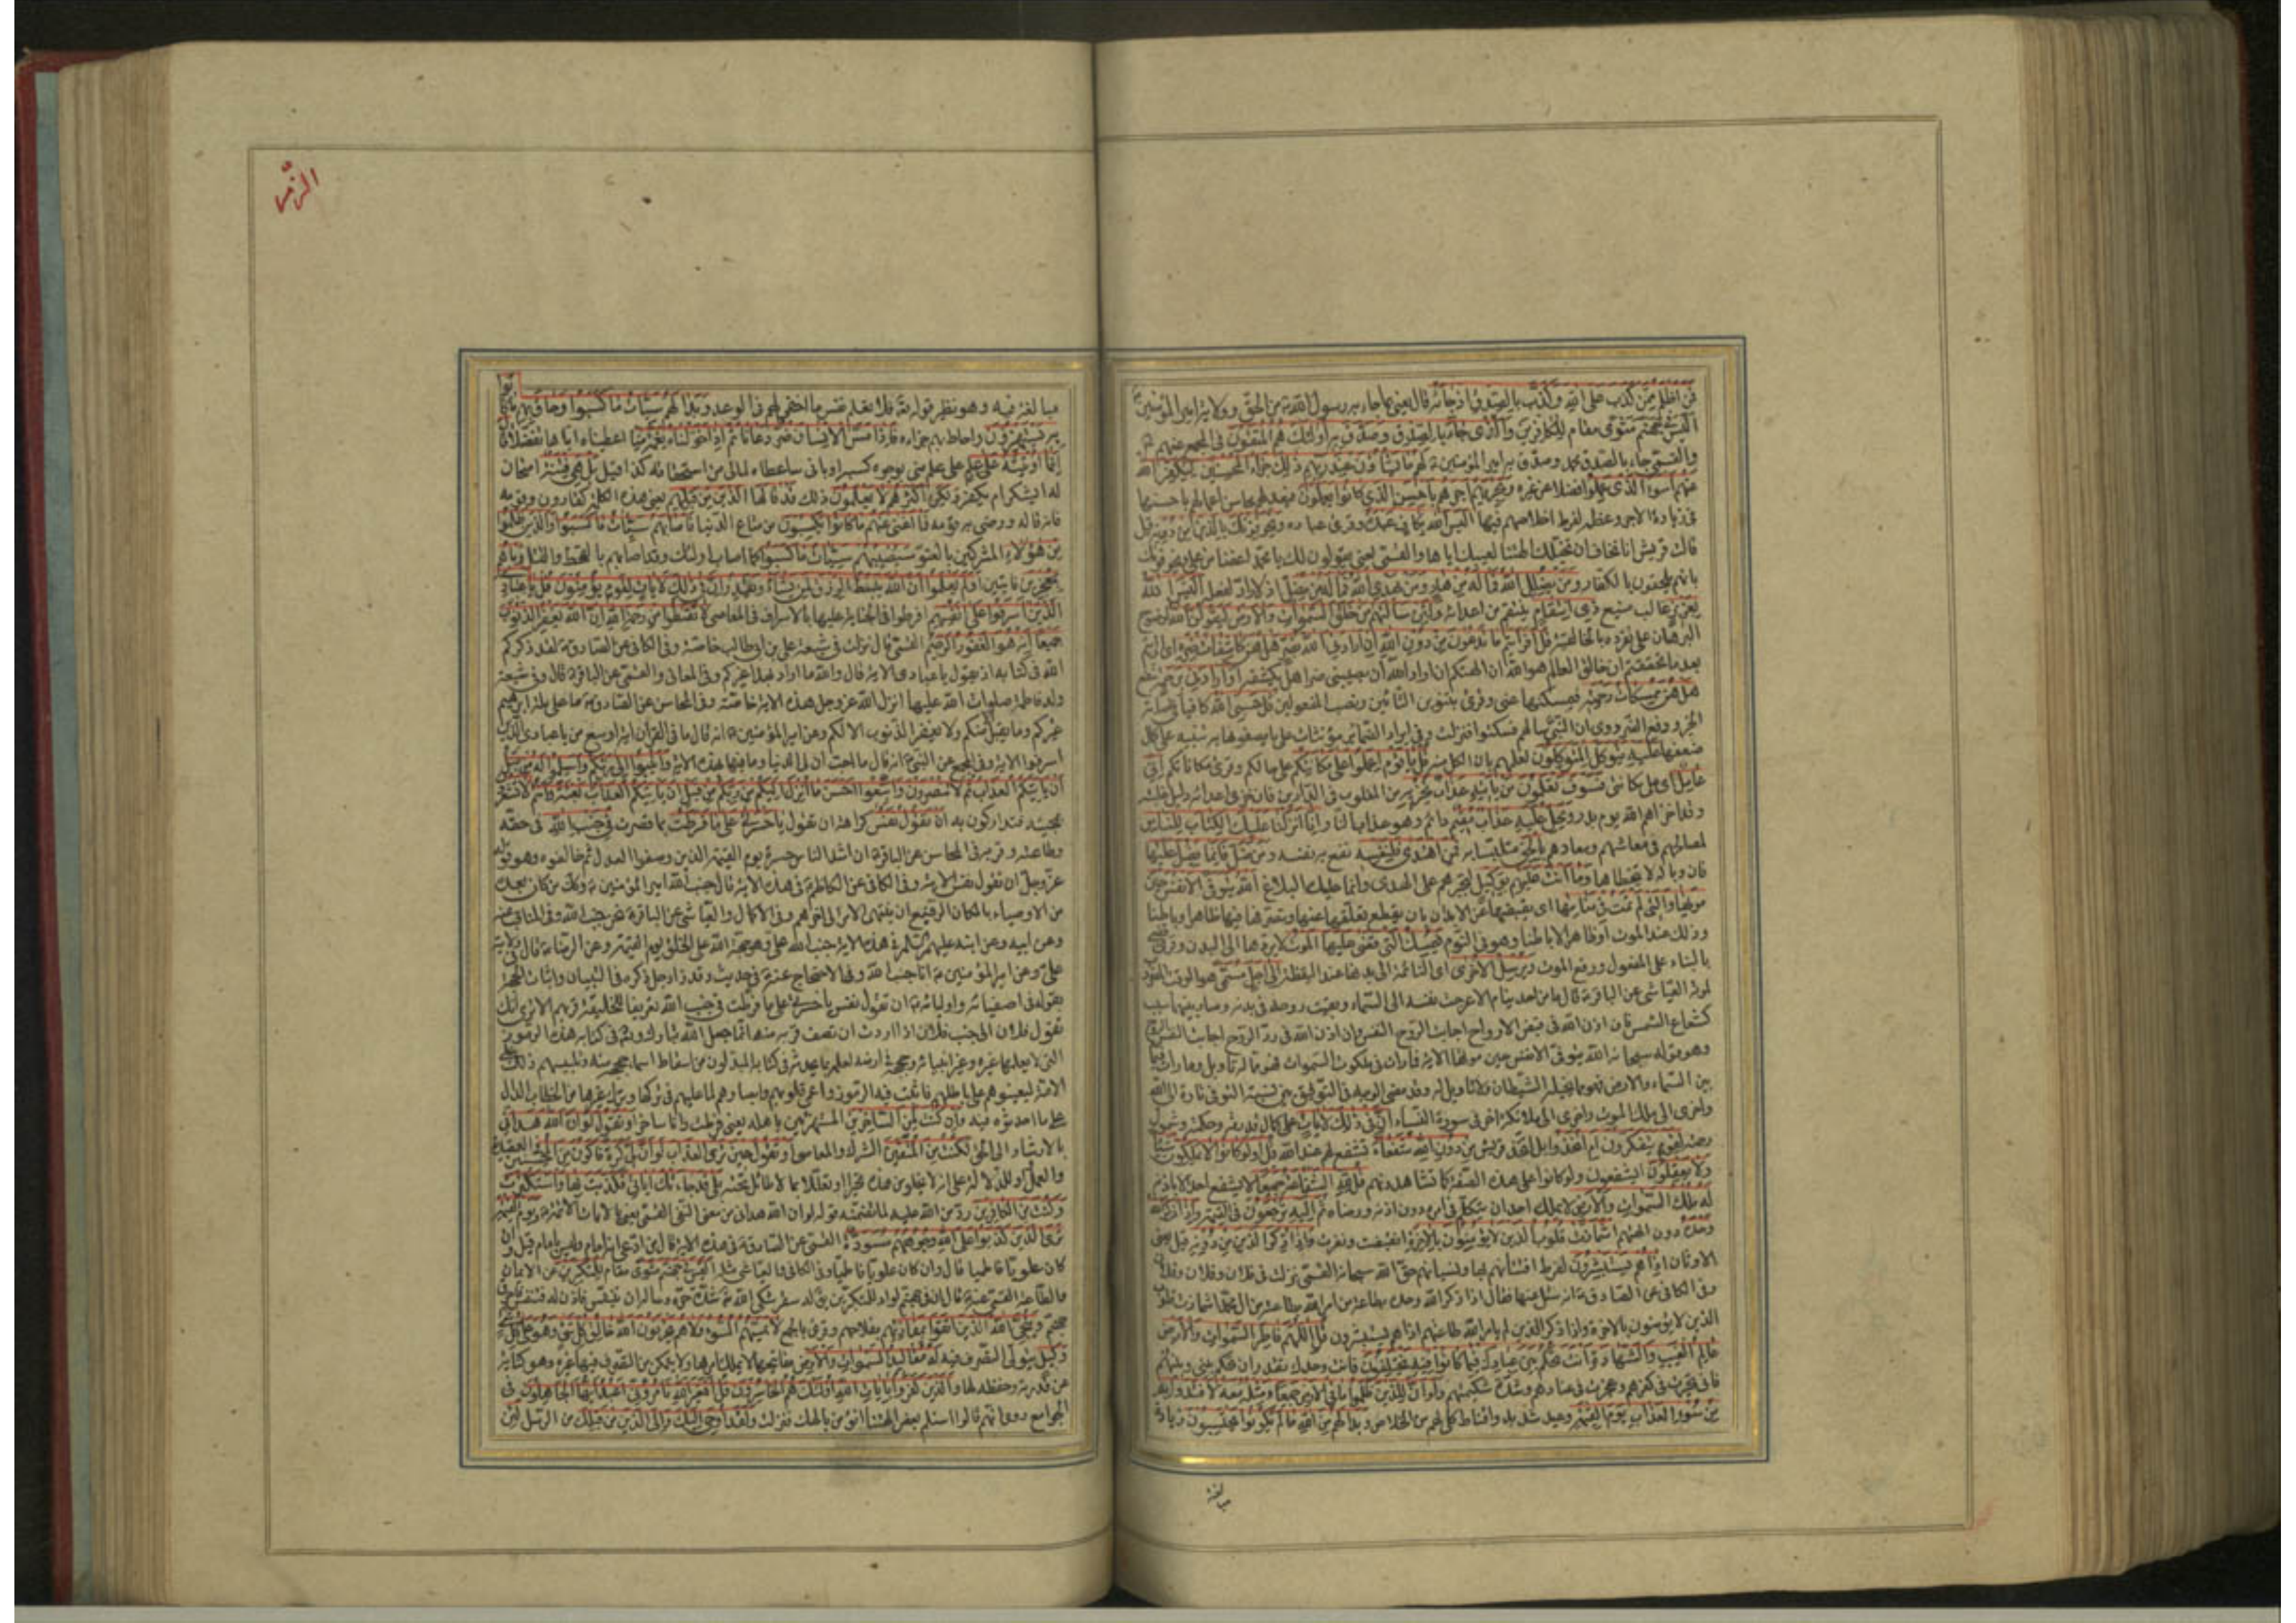 فمن اظلم ممن كذب على الله وكذب بالصدق اذ جاءه قال يعني بما جاء به رسول الله من الحق وولاية امير المؤمنين
اليس في جهنم مثوى مقام للكافرين والذي جاء بالصدق وصدق به اولئك هم المتقون في المجمع عنهم
والقمي جاء بالصدق محمد وصدق به امير المؤمنين لهم ما يشاؤن عند ربهم ذلك جزاء المحسنين ليكفر الله
عنهم اسوء الذي عملوا فضلا عن غيره ويجزيهم اجرهم باحسن الذي كانوا يعملون فيعد لهم محاسن اعمالهم باحسنها
في زيادة الاجر وعظمه لفرط اخلاصهم فيها اليس الله بكاف عبده وقرئ عباده ويخوفونك بالذين من دونه قيل
قالت قريش انا نخاف ان تخبلك الهتنا لعيبك اياها والقمي يعني يقولون لك يا محمد اعفنا من علي ويخوفونك
بانهم يلحقون بالكفار ومن يضلل الله فما له من هاد ومن يهدي الله فما له من مضل اذ لا راد لفعله اليس الله
بعزيز غالب منيع ذي انتقام ينتقم من اعدائه ولئن سالتهم من خلق السموات والارض ليقولن الله لوضوح
البرهان على تفرده بالخالقية قل افرايتم ما تدعون من دون الله ان ارادني الله بضر هل هن كاشفات ضره اي ارايتم
بعد ما تحققتم ان خالق العالم هو الله ان الهتكم ان اراد الله ان يصيبني ضرا هل يكشفنه او ارادني برحمة بنفع
هل هن ممسكات رحمته فيمسكنها عني وقرئ بتنوين التائين ونصب المفعولين قل حسبي الله كافيا في اصابة
الخير ودفع الضر روي ان النبي سالهم فسكتوا فنزلت وفي ايراد الضمائر مؤنثات على ما يصفونها به تنبيه على كمال
ضعفها عليه يتوكل المتوكلون لعلمهم بان الكل منه قل يا قوم اعملوا على مكانتكم على حالكم وقرئ مكاناتكم اني
عامل اي على مكانتي فسوف تعلمون من ياتيه عذاب يخزيه من المغلوب في الدارين فان خزي اعدائه دليل غلبته
وقد اخزاهم الله يوم بدر ويحل عليه عذاب مقيم دائم وهو عذاب النار انا انزلنا عليك الكتاب للناس
لمصالحهم في معاشهم ومعادهم بالحق متلبسا به فمن اهتدى فلنفسه نفع به نفسه ومن ضل فانما يضل عليها
فان وباله لا يتخطاها وما انت عليهم بوكيل لتجبرهم على الهدى وانما عليك البلاغ الله يتوفى الانفس حين
موتها والتي لم تمت في منامها اي يقبضها عن الابدان بان يقطع تعلقها عنها وتصرفها فيها ظاهرا وباطنا
وذلك عند الموت او ظاهرا لا باطنا وهو في النوم فيمسك التي قضى عليها الموت لا يردها الى البدن وقرئ
بالبناء على المفعول ورفع الموت ويرسل الاخرى اي النائمة الى بدنها عند اليقظة الى اجل مسمى هو الوقت المضروب
لموته العياشي عن الباقر قال ما من احد ينام الا عرجت نفسه الى السماء وبقيت روحه في بدنه وصار بينهما سبب
كشعاع الشمس فان اذن الله في قبض الارواح اجابت الروح النفس وان اذن الله في رد الروح اجابت النفس الروح
وهو قوله سبحانه الله يتوفى الانفس حين موتها الاية فما رات في ملكوت السموات فهو مما له تاويل وما رات
بين السماء والارض فهو مما يخيله الشيطان ولا تاويل له وقد مضى الوجه في التوفيق بين نسبة التوفي تارة الى الله
واخرى الى ملك الموت واخرى الى ملائكة اخر في سورة النساء ان في ذلك لايات على كمال قدرته وحكمته وشمول
رحمته لقوم يتفكرون ام اتخذوا بل اتخذ قريش من دون الله شفعاء تشفع لهم عند الله قل اولو كانوا لا يملكون شيئا
ولا يعقلون ايشفعون ولو كانوا على هذه الصفة كما تشاهدونهم قل لله الشفاعة جميعا لا يشفع احد الا باذنه
له ملك السموات والارض لا يملك احد ان يتكلم في امره دون اذنه ورضاه ثم اليه ترجعون في القيمة واذا ذكر الله
وحده دون الهتهم اشمازت قلوب الذين لا يؤمنون بالاخرة انقبضت ونفرت واذا ذكر الذين من دونه قيل يعني
الاوثان اذا هم يستبشرون لفرط افتتانهم بها ونسيانهم حق الله سبحانه القمي نزلت في فلان وفلان وفلان
وفي الكافي عن الصادق انه سئل عنها فقال اذا ذكر الله وحده بطاعة من امر الله بطاعته من ال محمد اشمازت قلوب
الذين لا يؤمنون بالاخرة واذا ذكر الذين لم يامر الله بطاعتهم اذا هم يستبشرون قل اللهم فاطر السموات والارض
عالم الغيب والشهادة انت تحكم بين عبادك فيما كانوا فيه يختلفون فانت وحدك تقدر ان تحكم بيني وبينهم
فاني تحيرت في كفرهم وعجزت في عنادهم وشدة شكيمتهم ولو ان للذين ظلموا ما في الارض جميعا ومثله معه لافتدوا به
من سوء العذاب يوم القيمة وعيد شديد واقناط كلي لهم من الخلاص وبدا لهم من الله ما لم يكونوا يحتسبون زيادة
الزمر
مبالغة فيه وهو نظير قوله فلا تعلم نفس ما اخفي لهم في الوعد وبدا لهم سيئات ما كسبوا وحاق بهم ما كانوا
به يستهزؤن واحاط بهم جزاءه فاذا مس الانسان ضر دعانا ثم اذا خولناه نعمة منا اعطيناه اياها تفضلا قال
انما اوتيته على علم على علم مني بوجوه كسبه او باني ساعطاه لما لي من استحقاقه كذا قيل بل هي فتنة امتحان
له ايشكر ام يكفر ولكن اكثرهم لا يعلمون ذلك قد قالها الذين من قبلهم يعني هذه الكلمة كقارون وقومه
فانه قاله ورضي به قومه فما اغنى عنهم ما كانوا يكسبون من متاع الدنيا فاصابهم سيئات ما كسبوا والذين ظلموا
من هؤلاء المشركين بالعتو سيصيبهم سيئات ما كسبوا كما اصاب اولئك وقد اصابهم بالقحط والقتل وما هم
بمعجزين فائتين اولم يعلموا ان الله يبسط الرزق لمن يشاء ويقدر ان في ذلك لايات لقوم يؤمنون قل يا عبادي
الذين اسرفوا على انفسهم افرطوا في الجناية عليها بالاسراف في المعاصي لا تقنطوا من رحمة الله ان الله يغفر الذنوب
جميعا انه هو الغفور الرحيم القمي قال نزلت في شيعة علي بن ابي طالب خاصة وفي الكافي عن الصادق لقد ذكركم
الله في كتابه اذ يقول يا عبادي الاية قال والله ما اراد بهذا غيركم وفي المعاني والقمي عن الباقر قال وفي شيعة
ولد فاطمة صلوات الله عليها انزل الله عز وجل هذه الاية خاصة وفي المحاسن عن الصادق ما على ملة ابراهيم
غيركم وما يقبل الا منكم ولا يغفر الذنوب الا لكم وعن امير المؤمنين انه قال ما في القران اية اوسع من يا عبادي الذين
اسرفوا الاية وفي المجمع عن النبي انه قال ما احب ان لي الدنيا وما فيها بهذه الاية وانيبوا الى ربكم واسلموا له من قبل
ان ياتيكم العذاب ثم لا تنصرون واتبعوا احسن ما انزل اليكم من ربكم من قبل ان ياتيكم العذاب بغتة وانتم لا تشعرون
بمجيئه فتداركون به ان تقول نفس كراهة ان تقول يا حسرتى على ما فرطت بما قصرت في جنب الله في حقه
وطاعته وقربه في المحاسن عن الباقر ان اشد الناس حسرة يوم القيمة الذين وصفوا العدل ثم خالفوه وهو قوله
عز وجل ان تقول نفس الاية وفي الكافي عن الكاظم في هذه الاية قال جنب الله امير المؤمنين وكذلك من كان بعده
من الاوصياء بالمكان الرفيع ان ينتهي الامر الى اخرهم وفي الاكمال والعياشي عن الباقر نحن جنب الله وفي المناقب عنه
وعن ابيه وعن ابنه عليهم السلم في هذه الاية جنب الله علي وهو حجة الله على الخلق يوم القيمة وعن الرضا قال في ولاية
علي وعن امير المؤمنين انا جنب الله وفي الاحتجاج عنه في حديث وقد زاد جل ذكره في التبيان واثبات الحجة
بقوله في اصفيائه واوليائه ان تقول نفس يا حسرتى على ما فرطت في جنب الله تعريفا للخليقة قربهم الا ترى انك
تقول فلان الى جنب فلان اذا اردت ان تصف قربه منه انما جعل الله تبارك وتعالى في كتابه هذه الرموز
التي لا يعلمها غيره وغير انبيائه وحججه في ارضه لعلمه بما يحدثه في كتابه المبدلون من اسقاط اسماء حججه منه وتلبيسهم ذلك على
الامة ليعينوهم على باطلهم فاثبت فيه الرموز واعمى قلوبهم وابصارهم لما عليهم في تركها وترك غيرها من الخطاب الدال
على ما احدثوه فيه وان كنت لمن الساخرين المستهزئين باهله يعني فرطت وانا ساخر او تقول لو ان الله هداني
بالارشاد الى الحق لكنت من المتقين الشرك والمعاصي او تقول حين ترى العذاب لو ان لي كرة فاكون من المحسنين في العقيدة
والعمل او للدلالة على انه لا يخلو من هذه تحيرا او تعللا بما لا طائل تحته بلى قد جاءتك اياتي فكذبت بها واستكبرت
وكنت من الكافرين رد من الله عليه لما تضمنه قوله لو ان الله هداني من معنى النفي القمي يعني بالايات الائمة ويوم القيمة
ترى الذين كذبوا على الله وجوههم مسودة القمي عن الصادق في هذه الاية قال من ادعى انه امام وليس بامام قيل وان
كان علويا فاطميا قال وان كان علويا فاطميا وفي الكافي والعياشي مثله اليس في جهنم مثوى مقام للمتكبرين عن الايمان
والطاعة القمي عنه قال ان في جهنم لواد للمتكبرين يقال له سقر شكى الى الله شدة حره وساله ان يتنفس فاذن له فتنفس فاحرق
جهنم وينجي الله الذين اتقوا بمفازتهم بفلاحهم وقرئ بالجمع لا يمسهم السوء ولا هم يحزنون الله خالق كل شيء وهو على كل شيء
وكيل يتولى التصرف فيه له مقاليد السموات والارض مفاتيحها لا يملك امرها ولا يتمكن من التصرف فيها غيره وهو كناية
عن قدرته وحفظه لها والذين كفروا بايات الله اولئك هم الخاسرون قل افغير الله تامروني اعبد ايها الجاهلون في
الجوامع روي انهم قالوا استلم بعض الهتنا نؤمن بالهك فنزلت ولقد اوحي اليك والى الذين من قبلك من الرسل لئن